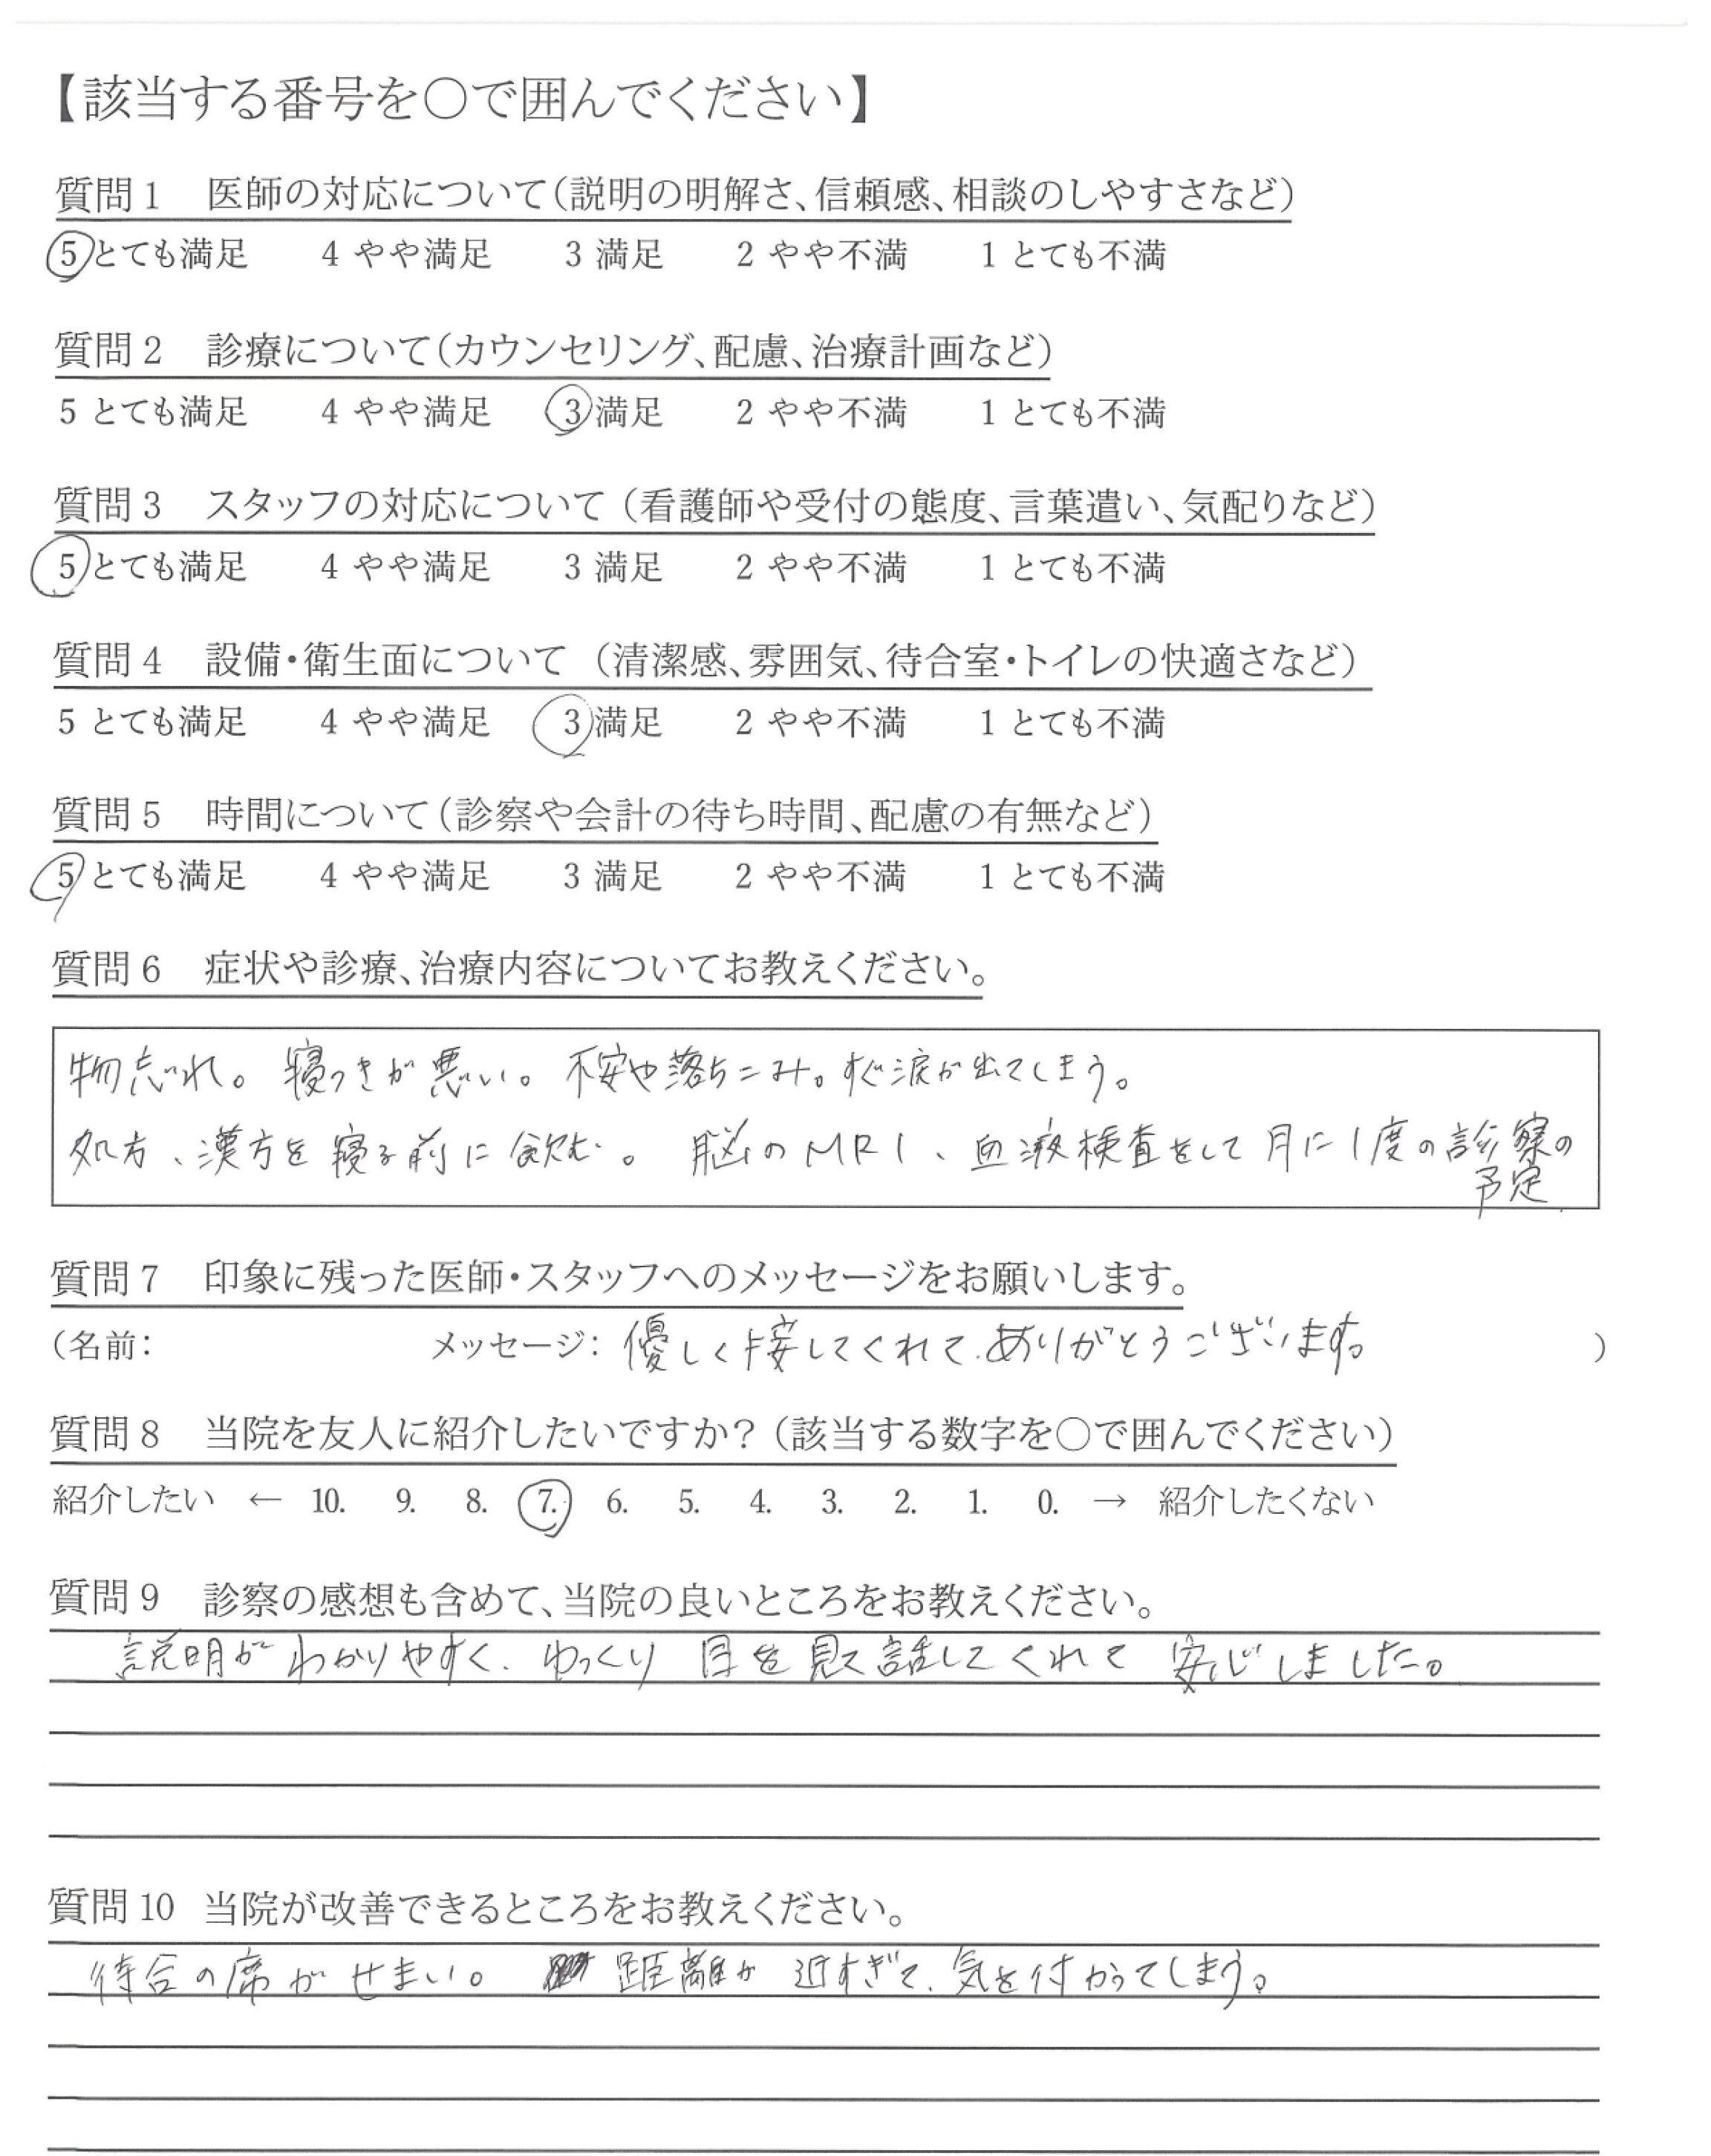 【該当する番号を〇で囲んでください】
質問1　医師の対応について（説明の明解さ、信頼感、相談のしやすさなど）
5 とても満足　4 やや満足　3 満足　2 やや不満　1 とても不満
質問2　診療について（カウンセリング、配慮、治療計画など）
5 とても満足　4 やや満足　3 満足　2 やや不満　1 とても不満
質問3　スタッフの対応について（看護師や受付の態度、言葉遣い、気配りなど）
5 とても満足　4 やや満足　3 満足　2 やや不満　1 とても不満
質問4　設備・衛生面について（清潔感、雰囲気、待合室・トイレの快適さなど）
5 とても満足　4 やや満足　3 満足　2 やや不満　1 とても不満
質問5　時間について（診察や会計の待ち時間、配慮の有無など）
5 とても満足　4 やや満足　3 満足　2 やや不満　1 とても不満
質問6　症状や診療、治療内容についてお教えください。
物忘れ。寝つきが悪い。不安や落ちこみ。すぐ涙が出てしまう。
処方、漢方を寝る前に飲む。脳のMRI、血液検査をして月に1度の診察の
予定
質問7　印象に残った医師・スタッフへのメッセージをお願いします。
（名前：　メッセージ：優しく接してくれて、ありがとうございます。）
質問8　当院を友人に紹介したいですか？（該当する数字を〇で囲んでください）
紹介したい　←　10.　9.　8.　7.　6.　5.　4.　3.　2.　1.　0.　→　紹介したくない
質問9　診察の感想も含めて、当院の良いところをお教えください。
説明がわかりやすく、ゆっくり目を見て話してくれて安心しました。
質問10　当院が改善できるところをお教えください。
待合の席がせまい。距離が近すぎて、気を付かってしまう。